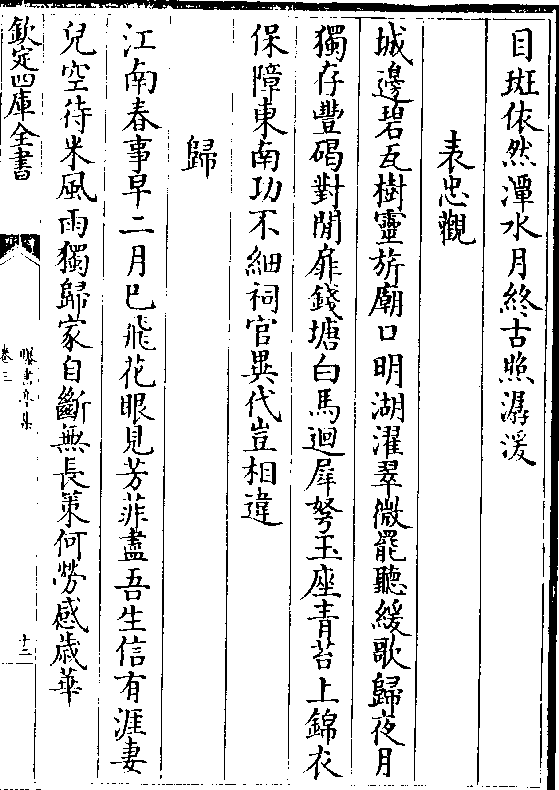 目斑依然潭水月終古照潺湲
表忠觀
城邊碧瓦樹靈旂廟口明湖濯翠微罷聽緩歌歸夜月
獨存豐碣對閒扉錢塘白馬迴犀弩玉座青苔上錦衣
保障東南功不細祠官異代豈相違
歸
江南春事早二月已飛花眼見芳菲盡吾生信有涯妻
兒空待米風雨獨歸家自斷無長策何勞感歲華
欽定四庫全書
曝書亭集
卷三
十三